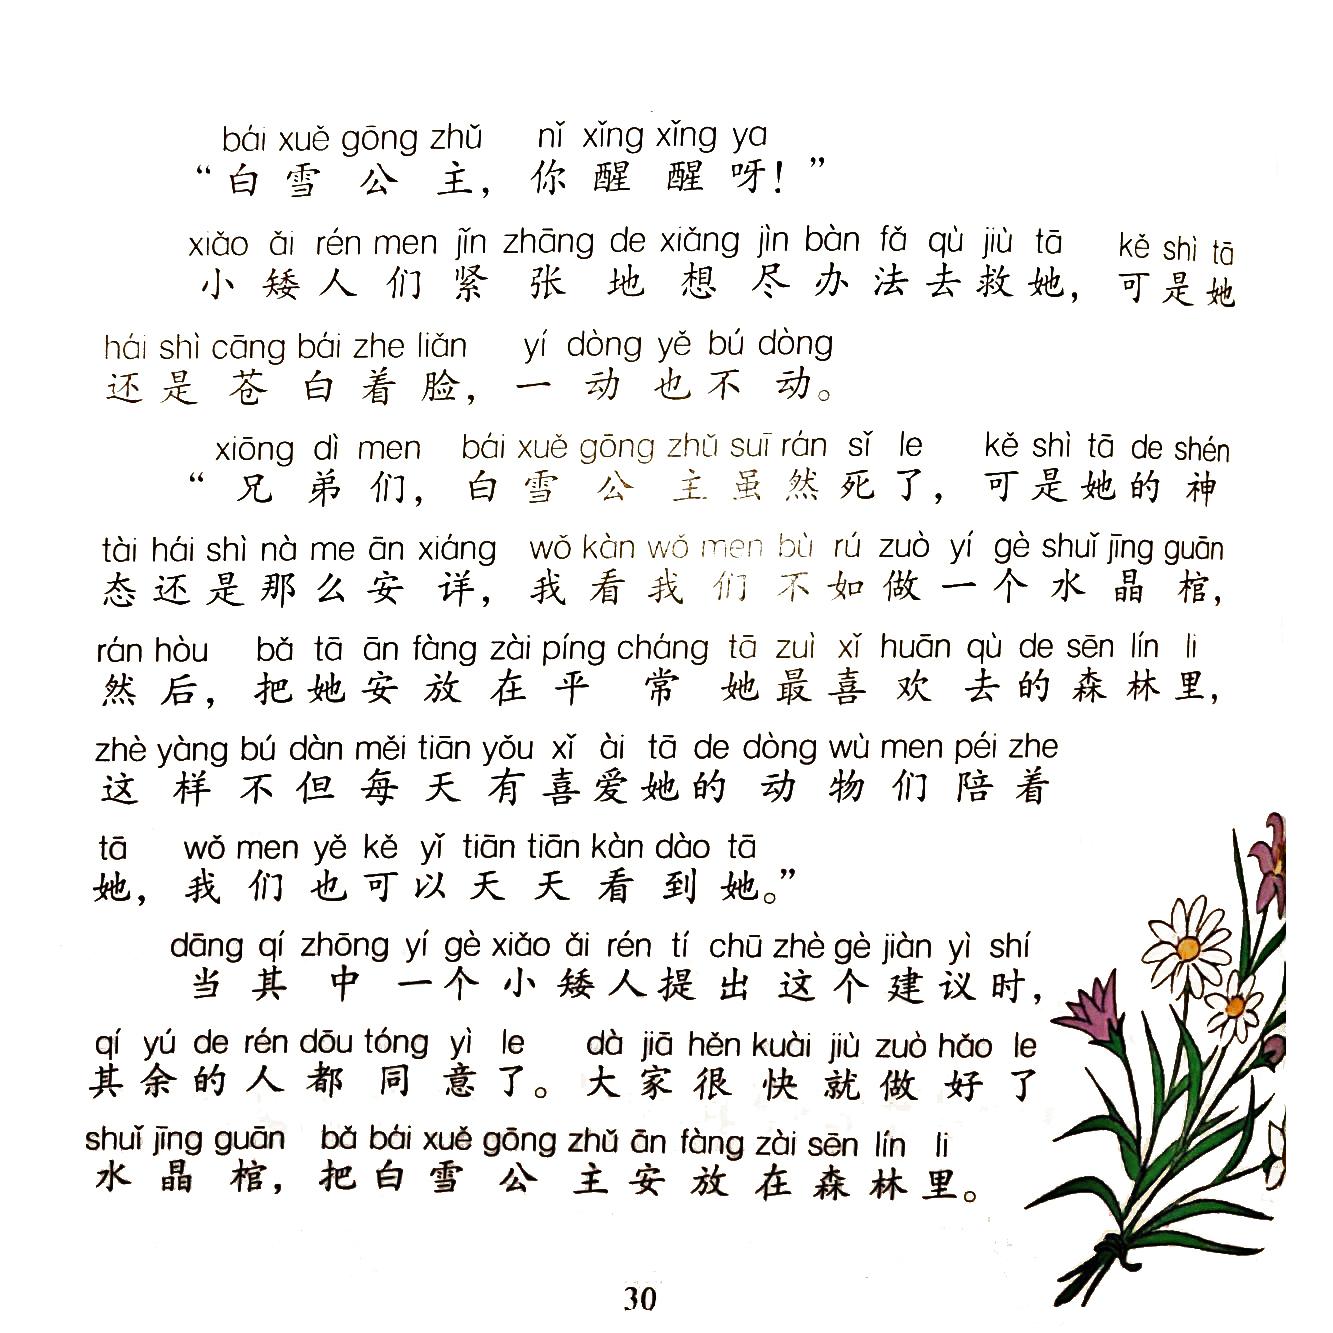 bái xuě gōng zhǔ nǐ xǐng xǐng ya
“白雪公主，你醒醒呀！”
xiǎo ǎi rén men jǐn zhāng de xiǎng jìn bàn fǎ qù jiù tā kě shì tā
小矮人们紧张地想尽办法去救她，可是她
hái shì cāng bái zhe liǎn yí dòng yě bú dòng
还是苍白着脸，一动也不动。
xiōng dì men bái xuě gōng zhǔ suī rán sǐ le kě shì tā de shén
“兄弟们，白雪公主虽然死了，可是她的神
tài hái shì nà me ān xiáng wǒ kàn wǒ men bù rú zuò yí gè shuǐ jīng guān
态还是那么安详，我看我们不如做一个水晶棺，
rán hòu bǎ tā ān fàng zài píng cháng tā zuì xǐ huān qù de sēn lín li
然后，把她安放在平常她最喜欢去的森林里，
zhè yàng bú dàn měi tiān yǒu xǐ ài tā de dòng wù men péi zhe
这样不但每天有喜爱她的动物们陪着
tā wǒ men yě kě yǐ tiān tiān kàn dào tā
她，我们也可以天天看到她。”
dāng qí zhōng yí gè xiǎo ǎi rén tí chū zhè gè jiàn yì shí
当其中一个小矮人提出这个建议时，
qí yú de rén dōu tóng yì le dà jiā hěn kuài jiù zuò hǎo le
其余的人都同意了。大家很快就做好了
shuǐ jīng guān bǎ bái xuě gōng zhǔ ān fàng zài sēn lín li
水晶棺，把白雪公主安放在森林里。
30